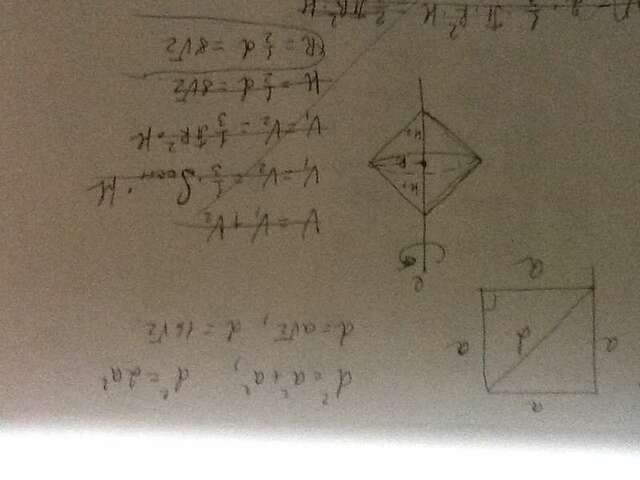 a
a d a
a
d² = a² + a², d² = 2a²
d = a√2, d = 16√2
e
H₁
R
H₂
V = V₁ + V₂
V₁ = V₂ = 1/3 · Sосн · H
V₁ = V₂ = 1/3 πR² · H
H = 1/2 d = 8√2
R = 1/2 d = 8√2
= 2 · 1/3 · π · R² · H = 2/3 πR² · H